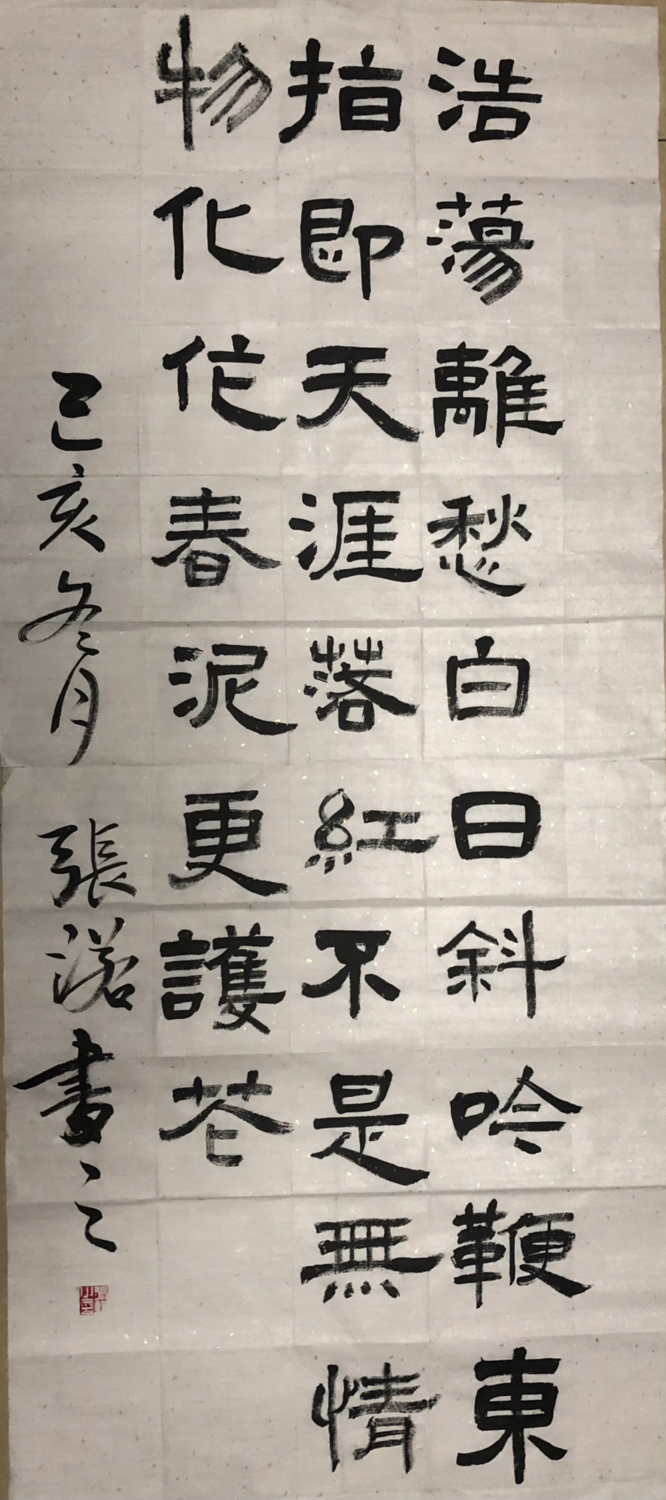 浩蕩離愁白日斜吟鞭東
指即天涯落紅不是無情
物化作春泥更護花
己亥冬月張滏書之